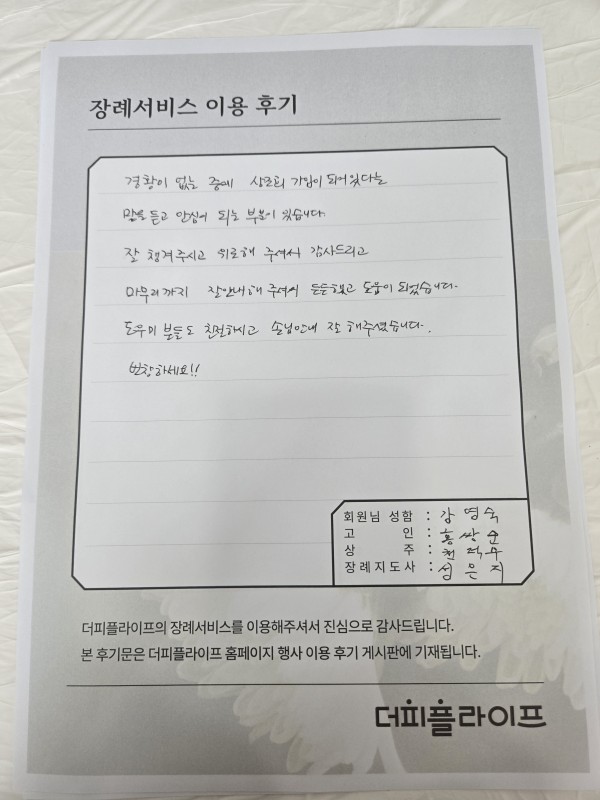 장례서비스 이용 후기
경황이 없는 중에 상조회 가입이 되어있다는
말을 듣고 안심이 되는 부분이 있습니다.
잘 챙겨주시고 위로해 주셔서 감사드리고
마무리까지 잘안내해 주셔서 든든했고 도움이 되었습니다.
도우미 분들도 친절하시고 손님안내 잘 해주셨습니다.
번창하세요!!
회원님 성함 : 강영숙
고 인 : 홍쌍순
상 주 :
장례지도사 : 성은지
더피플라이프의 장례서비스를 이용해주셔서 진심으로 감사드립니다.
본 후기문은 더피플라이프 홈페이지 행사 이용 후기 게시판에 기재됩니다.
더피플라이프